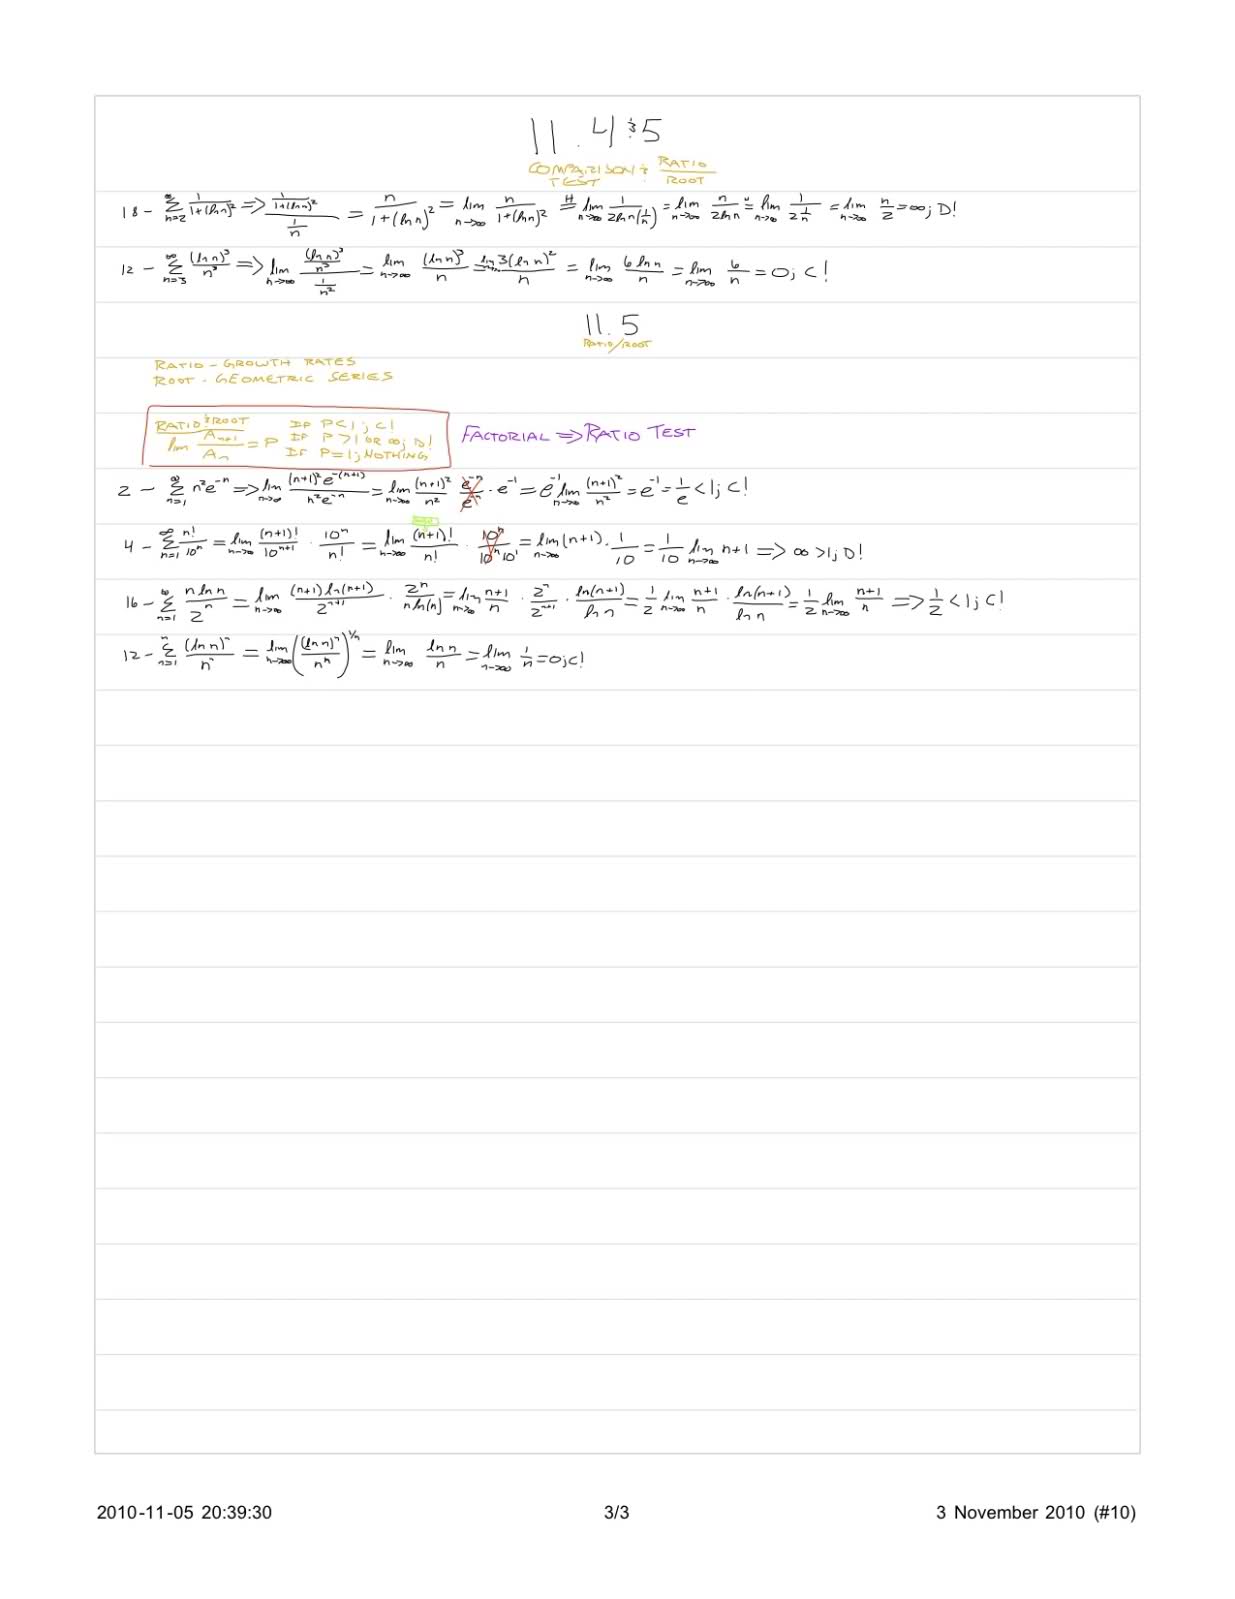 11.4 & 5
COMPARISON & RATIO/ROOT
TEST
18 - ∑_{n=2}^{∞} 1/(1+(ln n)^2) => (1/(1+(ln n)^2))/(1/n) = n/(1+(ln n)^2) = lim_{n→∞} n/(1+(ln n)^2) =^H lim_{n→∞} 1/(2 ln n(1/n)) = lim_{n→∞} n/(2 ln n) =^H lim_{n→∞} 1/(2 1/n) = lim_{n→∞} n/2 = ∞; D!
12 - ∑_{n=3}^{∞} (ln n)^3/n^3 => lim_{n→∞} ((ln n)^3/n^3)/(1/n^2) = lim_{n→∞} (ln n)^3/n = lim 3(ln n)^2/n = lim_{n→∞} 6 ln n/n = lim_{n→∞} 6/n = 0; C!
11.5
RATIO/ROOT
RATIO - GROWTH RATES
ROOT - GEOMETRIC SERIES
RATIO & ROOT IF P<1; C!
lim A_{n+1}/A_n = P IF P>1 OR ∞; D!
IF P=1; NOTHING
FACTORIAL => RATIO TEST
2 - ∑_{n=1}^{∞} n^2 e^{-n} => lim_{n→∞} (n+1)^2 e^{-(n+1)}/(n^2 e^{-n}) = lim_{n→∞} (n+1)^2/n^2 e^{-n}/e^{-n} · e^{-1} = e^{-1} lim_{n→∞} (n+1)^2/n^2 = e^{-1} = 1/e < 1; C!
4 - ∑_{n=1}^{∞} n!/10^n = lim_{n→∞} (n+1)!/10^{n+1} · 10^n/n! = lim_{n→∞} (n+1)!/n! · 10^n/(10^n 10^1) = lim_{n→∞} (n+1) · 1/10 = 1/10 lim_{n→∞} n+1 => ∞ > 1; D!
16 - ∑_{n=1}^{∞} n ln n/2^n = lim_{n→∞} (n+1) ln(n+1)/2^{n+1} · 2^n/(n ln(n)) = lim_{n→∞} (n+1)/n · 2^n/2^{n+1} · ln(n+1)/ln n = 1/2 lim_{n→∞} (n+1)/n · ln(n+1)/ln n = 1/2 lim_{n→∞} (n+1)/n => 1/2 < 1; C!
12 - ∑_{n=1}^{n} (ln n)^n/n^n = lim_{n→∞} ((ln n)^n/n^n)^{1/n} = lim_{n→∞} ln n/n = lim_{n→∞} 1/n = 0; C!
2010-11-05 20:39:30 3/3 3 November 2010 (#10)